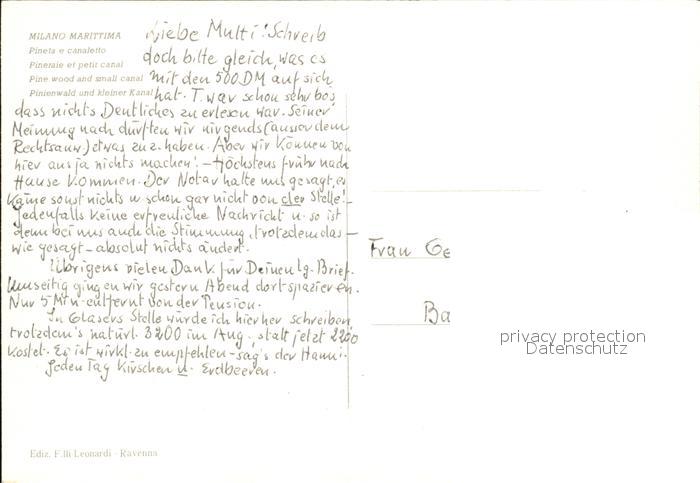 MILANO MARITTIMA
Pineta e canaletto
Pineraie et petit canal
Pine wood and small canal
Pinienwald und kleiner Kanal
Liebe Multi! Schreib
doch bitte gleich, was es
mit den 500 DM auf sich
hat. T. war schon sehr bös,
dass nichts Deutliches zu erlesen war. Seiner
Meinung nach dürften wir nirgends (ausser dem
Rechtsanw.) etwas zu z. haben. Aber wir können von
hier aus ja nichts machen! - Höchstens früher nach
Hause kommen. Der Notar hatte uns gesagt, es
käme sonst nichts u. schon gar nicht von der Stelle! -
Jedenfalls keine erfreuliche Nachricht u. so ist
denn bei uns auch die Stimmung, trotzdem das -
wie gesagt - absolut nichts ändert.
Übrigens vielen Dank für Deinen lg. Brief.
Umseitig gingen wir gestern Abend dort spazieren.
Nur 5 Min entfernt von der Pension.
In Glasers Stelle würde ich hierher schreiben,
trotzdem's natürl. 3200 im Aug., statt jetzt 2200
kostet. Es ist wirkl. zu empfehlen - sag's der Hanni.
Jeden Tag Kirschen u. Erdbeeren.
Frau Ge
Ba
privacy protection
Datenschutz
Ediz. F.lli Leonardi - Ravenna